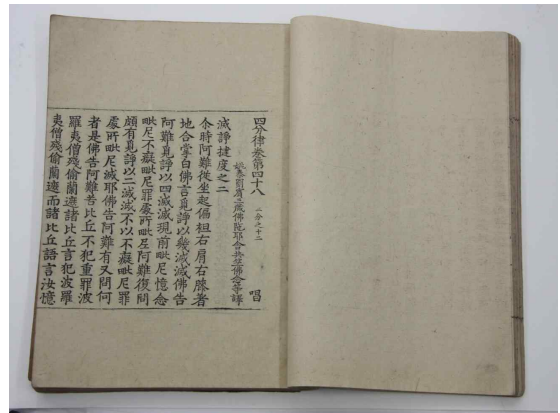 四分律卷第四十八 二分之十二 唱
姚秦罽賓三藏佛陀耶舍共竺佛念等譯
滅諍揵度之二
尒時阿難從坐起偏袒右肩右膝著
地合掌白佛言覓諍以幾滅滅佛告
阿難覓諍以四滅滅現前毗尼憶念
毗尼不癡毗尼罪處所毗尼阿難復問
頗有覓諍以二滅滅不以不癡毗尼罪
處所毗尼滅耶佛告阿難有又問何
者是佛告阿難若比丘不犯重罪波
羅夷僧殘偷蘭遮諸比丘言犯波羅
夷僧殘偷蘭遮而諸比丘語言汝憶